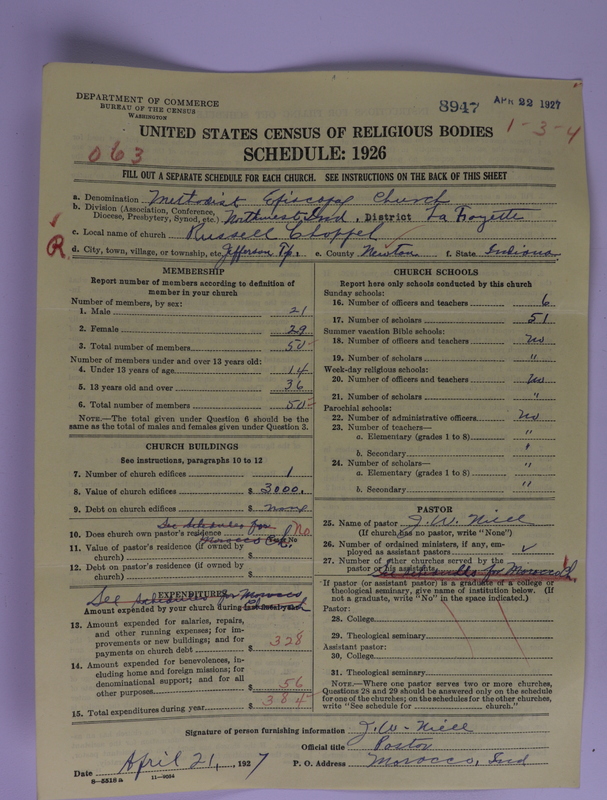 DEPARTMENT OF COMMERCE
BUREAU OF THE CENSUS
WASHINGTON
8947 APR 22 1927
1-3-4
UNITED STATES CENSUS OF RELIGIOUS BODIES
063
SCHEDULE: 1926
FILL OUT A SEPARATE SCHEDULE FOR EACH CHURCH. SEE INSTRUCTIONS ON THE BACK OF THIS SHEET
a. Denomination Methodist Episcopal Church
b. Division (Association, Conference, Diocese, Presbytery, Synod, etc.) Northwest Ind, District La Fayette
c. Local name of church Russell Chappel
R
d. City, town, village, or township, etc. Jefferson Tp. e. County Newton f. State Indiana
MEMBERSHIP
Report number of members according to definition of
member in your church
Number of members, by sex:
1. Male 21
2. Female 29
3. Total number of members 50
Number of members under and over 13 years old:
4. Under 13 years of age 14
5. 13 years old and over 36
6. Total number of members 50
NOTE.—The total given under Question 6 should be
same as the total of males and females given under Question 3.
CHURCH BUILDINGS
See instructions, paragraphs 10 to 12
7. Number of church edifices 1
8. Value of church edifices $ 3000.
9. Debt on church edifices $ none
See Schedules for
10. Does church own pastor's residence No
Morocco
11. Value of pastor's residence (if owned by
church) $
12. Debt on pastor's residence (if owned by
church) $
EXPENDITURES
See schedules for Morocco
Amount expended by your church during
13. Amount expended for salaries, repairs,
and other running expenses; for im-
provements or new buildings; and for
payments on church debt $ 328
14. Amount expended for benevolences, in-
cluding home and foreign missions; for
denominational support; and for all
other purposes $ 56
15. Total expenditures during year $ 384
CHURCH SCHOOLS
Report here only schools conducted by this church
Sunday schools:
16. Number of officers and teachers 6
17. Number of scholars 51
Summer vacation Bible schools:
18. Number of officers and teachers no
19. Number of scholars "
Week-day religious schools:
20. Number of officers and teachers no
21. Number of scholars "
Parochial schools:
22. Number of administrative officers no
23. Number of teachers—
a. Elementary (grades 1 to 8) "
b. Secondary "
24. Number of scholars—
a. Elementary (grades 1 to 8) "
b. Secondary "
PASTOR
25. Name of pastor J. W. Niell
(If church has no pastor, write "None")
26. Number of ordained ministers, if any, em-
ployed as assistant pastors ✓
27. Number of other churches served by the
pastor or his assistants for Morocco
If pastor (or assistant pastor) is a graduate of a college or
theological seminary, give name of institution below. (If
not a graduate, write "No" in the space indicated.)
Pastor:
28. College
29. Theological seminary
Assistant pastor:
30. College
31. Theological seminary
NOTE.—Where one pastor serves two or more churches,
Questions 28 and 29 should be answered only on the schedule
for one of the churches; on the schedules for the other churches,
write "See schedule for church."
Signature of person furnishing information J. W. Niell
Official title Pastor
Date April 21, 1927 P. O. Address Morocco, Ind
8-5518 a 11-9054